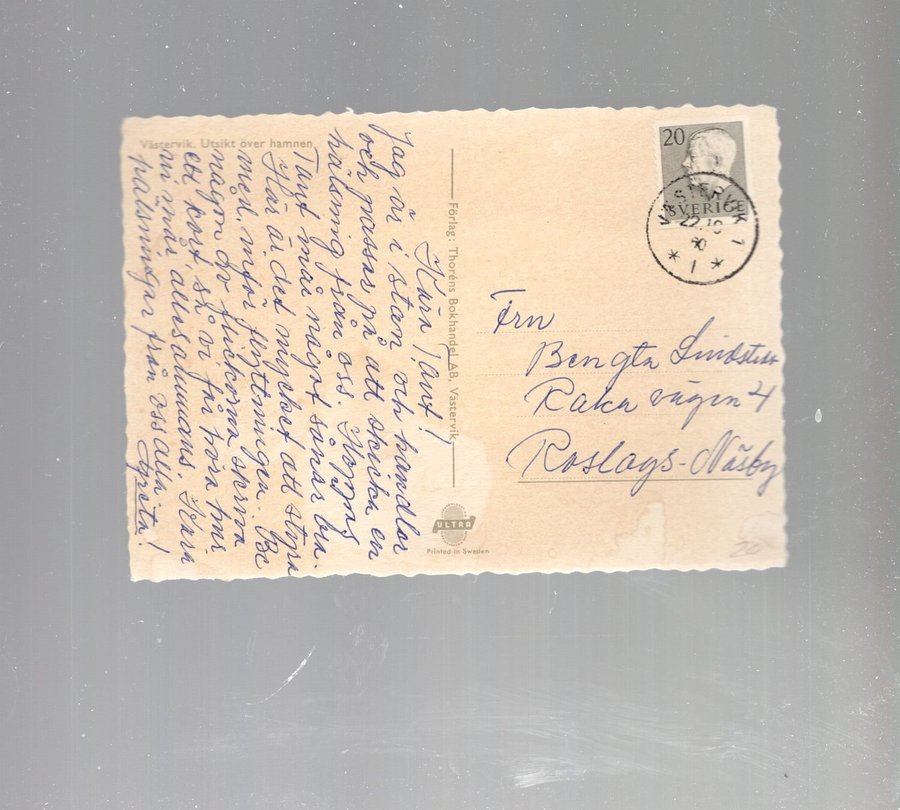 Västervik. Utsikt över hamnen
Kära Tant!
Jag är i stan och handlar
och passar på att skicka en
hälsning från oss. Hoppas
Tant mår något sånär bra.
Här är det mycket att styra
med inför flyttningen. Be
någon av flickorna skriva
ett kort, så vi får höra hur
ni mår allesammans. Kära
hälsningar från oss alla
Greta!
Förlag: Thoréns Bokhandel AB, Västervik
ULTRA
Printed in Sweden
20
SVERIGE
VÄSTERVIK 1
22.10
60
* 1 *
Fru
Bengta Lindster
Raka vägen 4
Roslags-Näsby
20